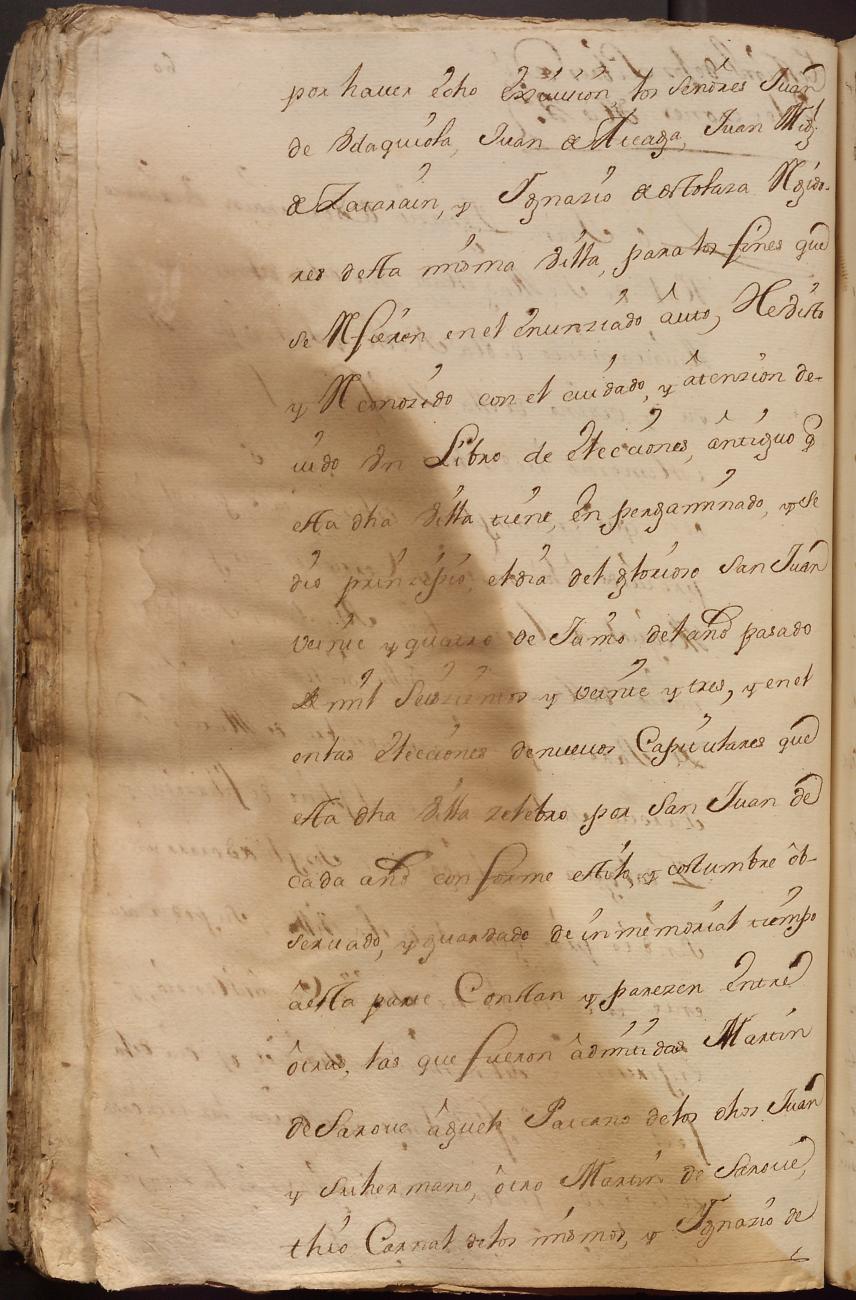 por hauer echo Exsiuicion los Señores Juan
de Vdaquiola, Juan de Aleaga, Juan Migl
de Zatarain, y Ygnazio de Astolaza Rexido-
res desta misma Villa, para los fines que
se Refieren en el enunziado auto, He visto
y Reconozido con el cuidado, y atenzion de-
uido Vn Libro de elecciones, antiguo q
esta dha Villa tiene, en pergaminado, y se
dio prinzipio, el dia del glorioso San Juan
veinte y quatro de Junio del año pasado
de mil Seiszientos y veinte y tres, y en el
en las elecciones de nueuos Capitulares que
esta dha Villa zelebro por San Juan de
cada año conforme estilo y costumbre ob-
seruado, y guardado de inmemorial tiempo
a esta parte Constan y parezen Entre
otras, las que fueron admitidas Martin
de Saroue aguelo Paterno de los dhos Juan
y su hermano, otro Martin de Saroue,
thio Carnal de los mismos, y Ygnazio de